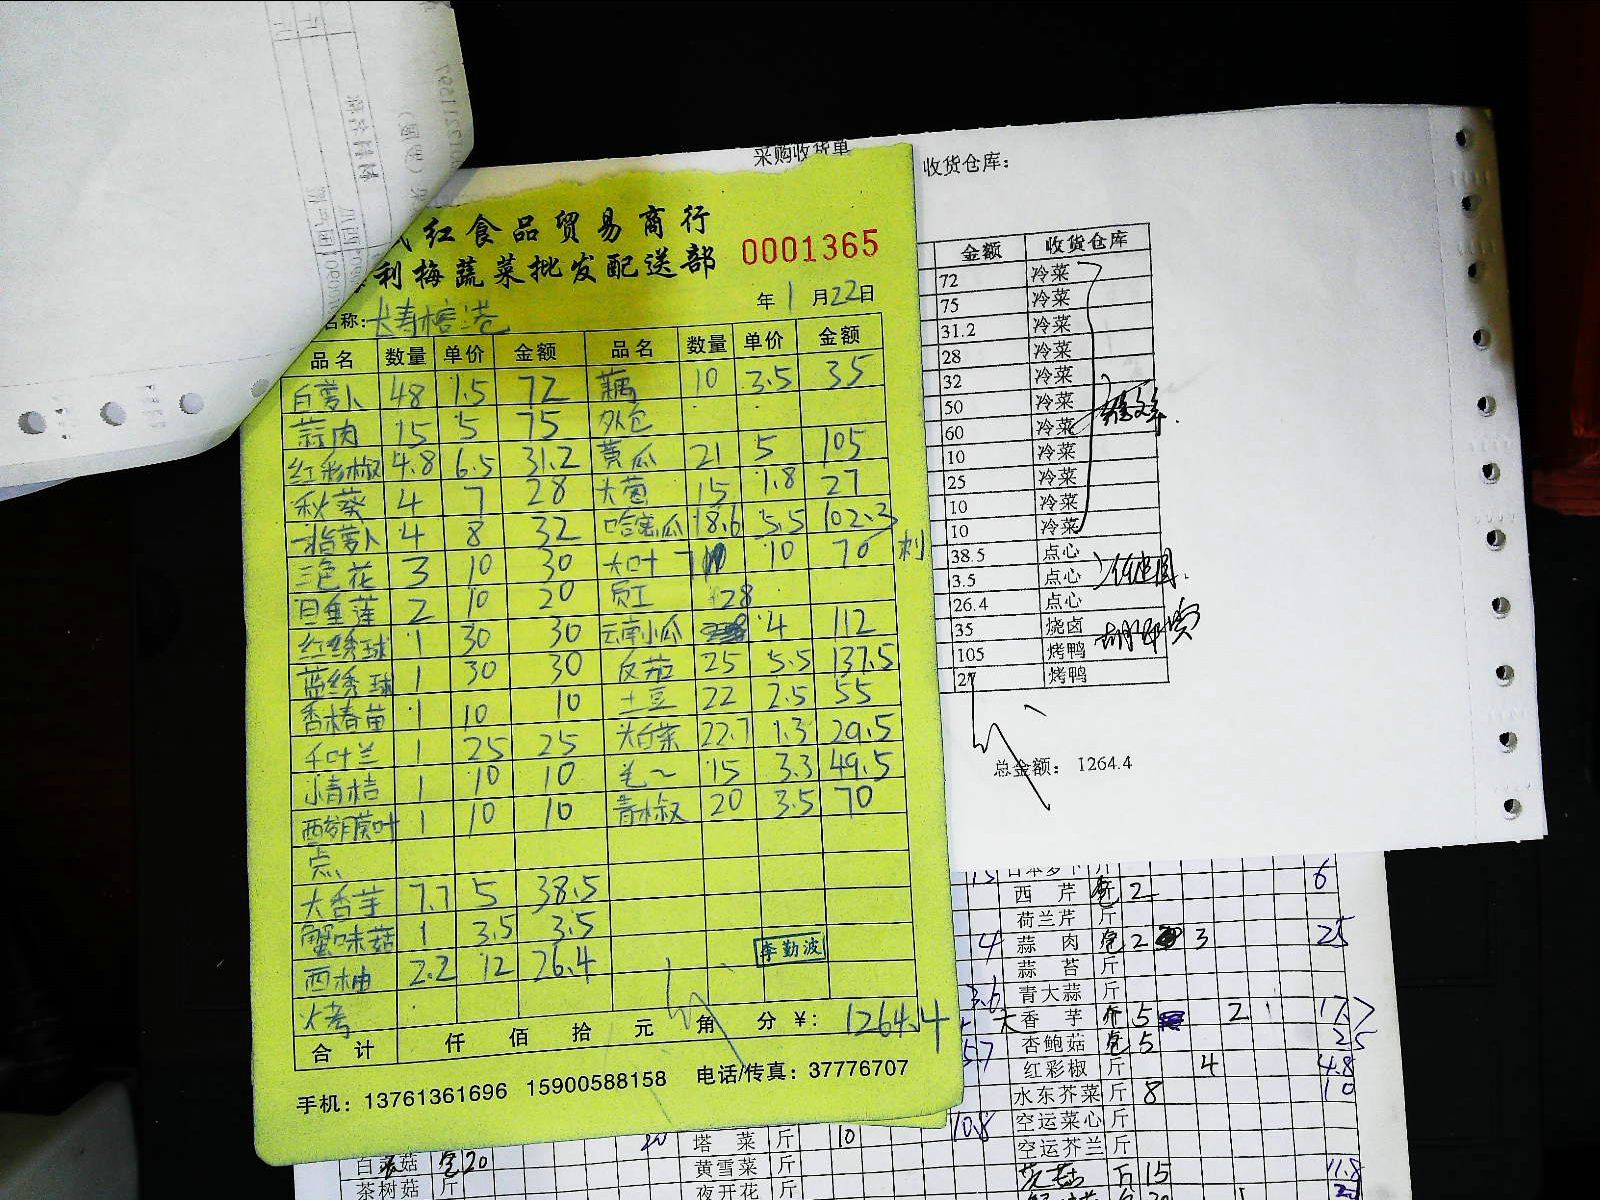 采购收货单
收货仓库：
红食品贸易商行
利梅蔬菜批发配送部 0001365
年 1 月 22 日
名称：大寿榕港
品名 数量 单价 金额 品名 数量 单价 金额
白萝卜 48 1.5 72 藕 10 3.5 35
蒜肉 15 5 75 外仓
红彩椒 4.8 6.5 31.2 黄瓜 21 5 105
秋葵 4 7 28 大葱 15 1.8 27
指萝卜 4 8 32 哈密瓜 18.6 5.5 102.3
三色花 3 10 30 大叶 7 10 70
日垂莲 2 10 20 员工 28
红绣球 1 30 30 云南小瓜 4 112
蓝绣球 1 30 30 反茄 25 5.5 137.5
香椿苗 1 10 10 土豆 22 2.5 55
千叶兰 1 25 25 大白菜 22.7 1.3 29.5
小青桔 1 10 10 毛～ 15 3.3 49.5
1 10 10 青椒 20 3.5 70
点
大香芋 7.7 5 38.5
蟹味菇 1 3.5 3.5
西柚 2.2 12 26.4
李勤波
火考
合计 仟 佰 拾 元 角 分 ¥： 1264.4
手机：13761361696 15900588158 电话/传真：37776707
金额 收货仓库
72 冷菜
75 冷菜
31.2 冷菜
28 冷菜
32 冷菜
50 冷菜
60 冷菜
10 冷菜
25 冷菜
10 冷菜
10 冷菜
38.5 点心
3.5 点心
26.4 点心
35 烧卤
105 烤鸭
27 烤鸭
总金额： 1264.4
15 日本萝卜 斤 6
西芹 2
荷兰芹 斤
4 蒜肉 包 2 3 25
蒜苔 斤
3.6 青大蒜 斤
大香芋 5 2 17.7
5.7 杏鲍菇 包 5 25
红彩椒 斤 4 4.8
水东芥菜 斤 8 10
10.8 空运菜心 斤
空运芥兰 斤
斤 15 11.8
20 塔菜 斤 10
白菇 包 20 黄雪菜 斤
茶树菇 斤 夜开花 斤